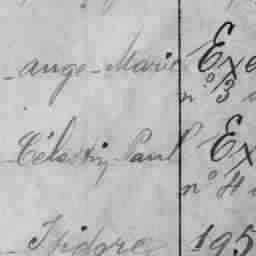 ange-Marie Exe
n° 3
Célestin Paul Ex
n° 4
Isidore 195